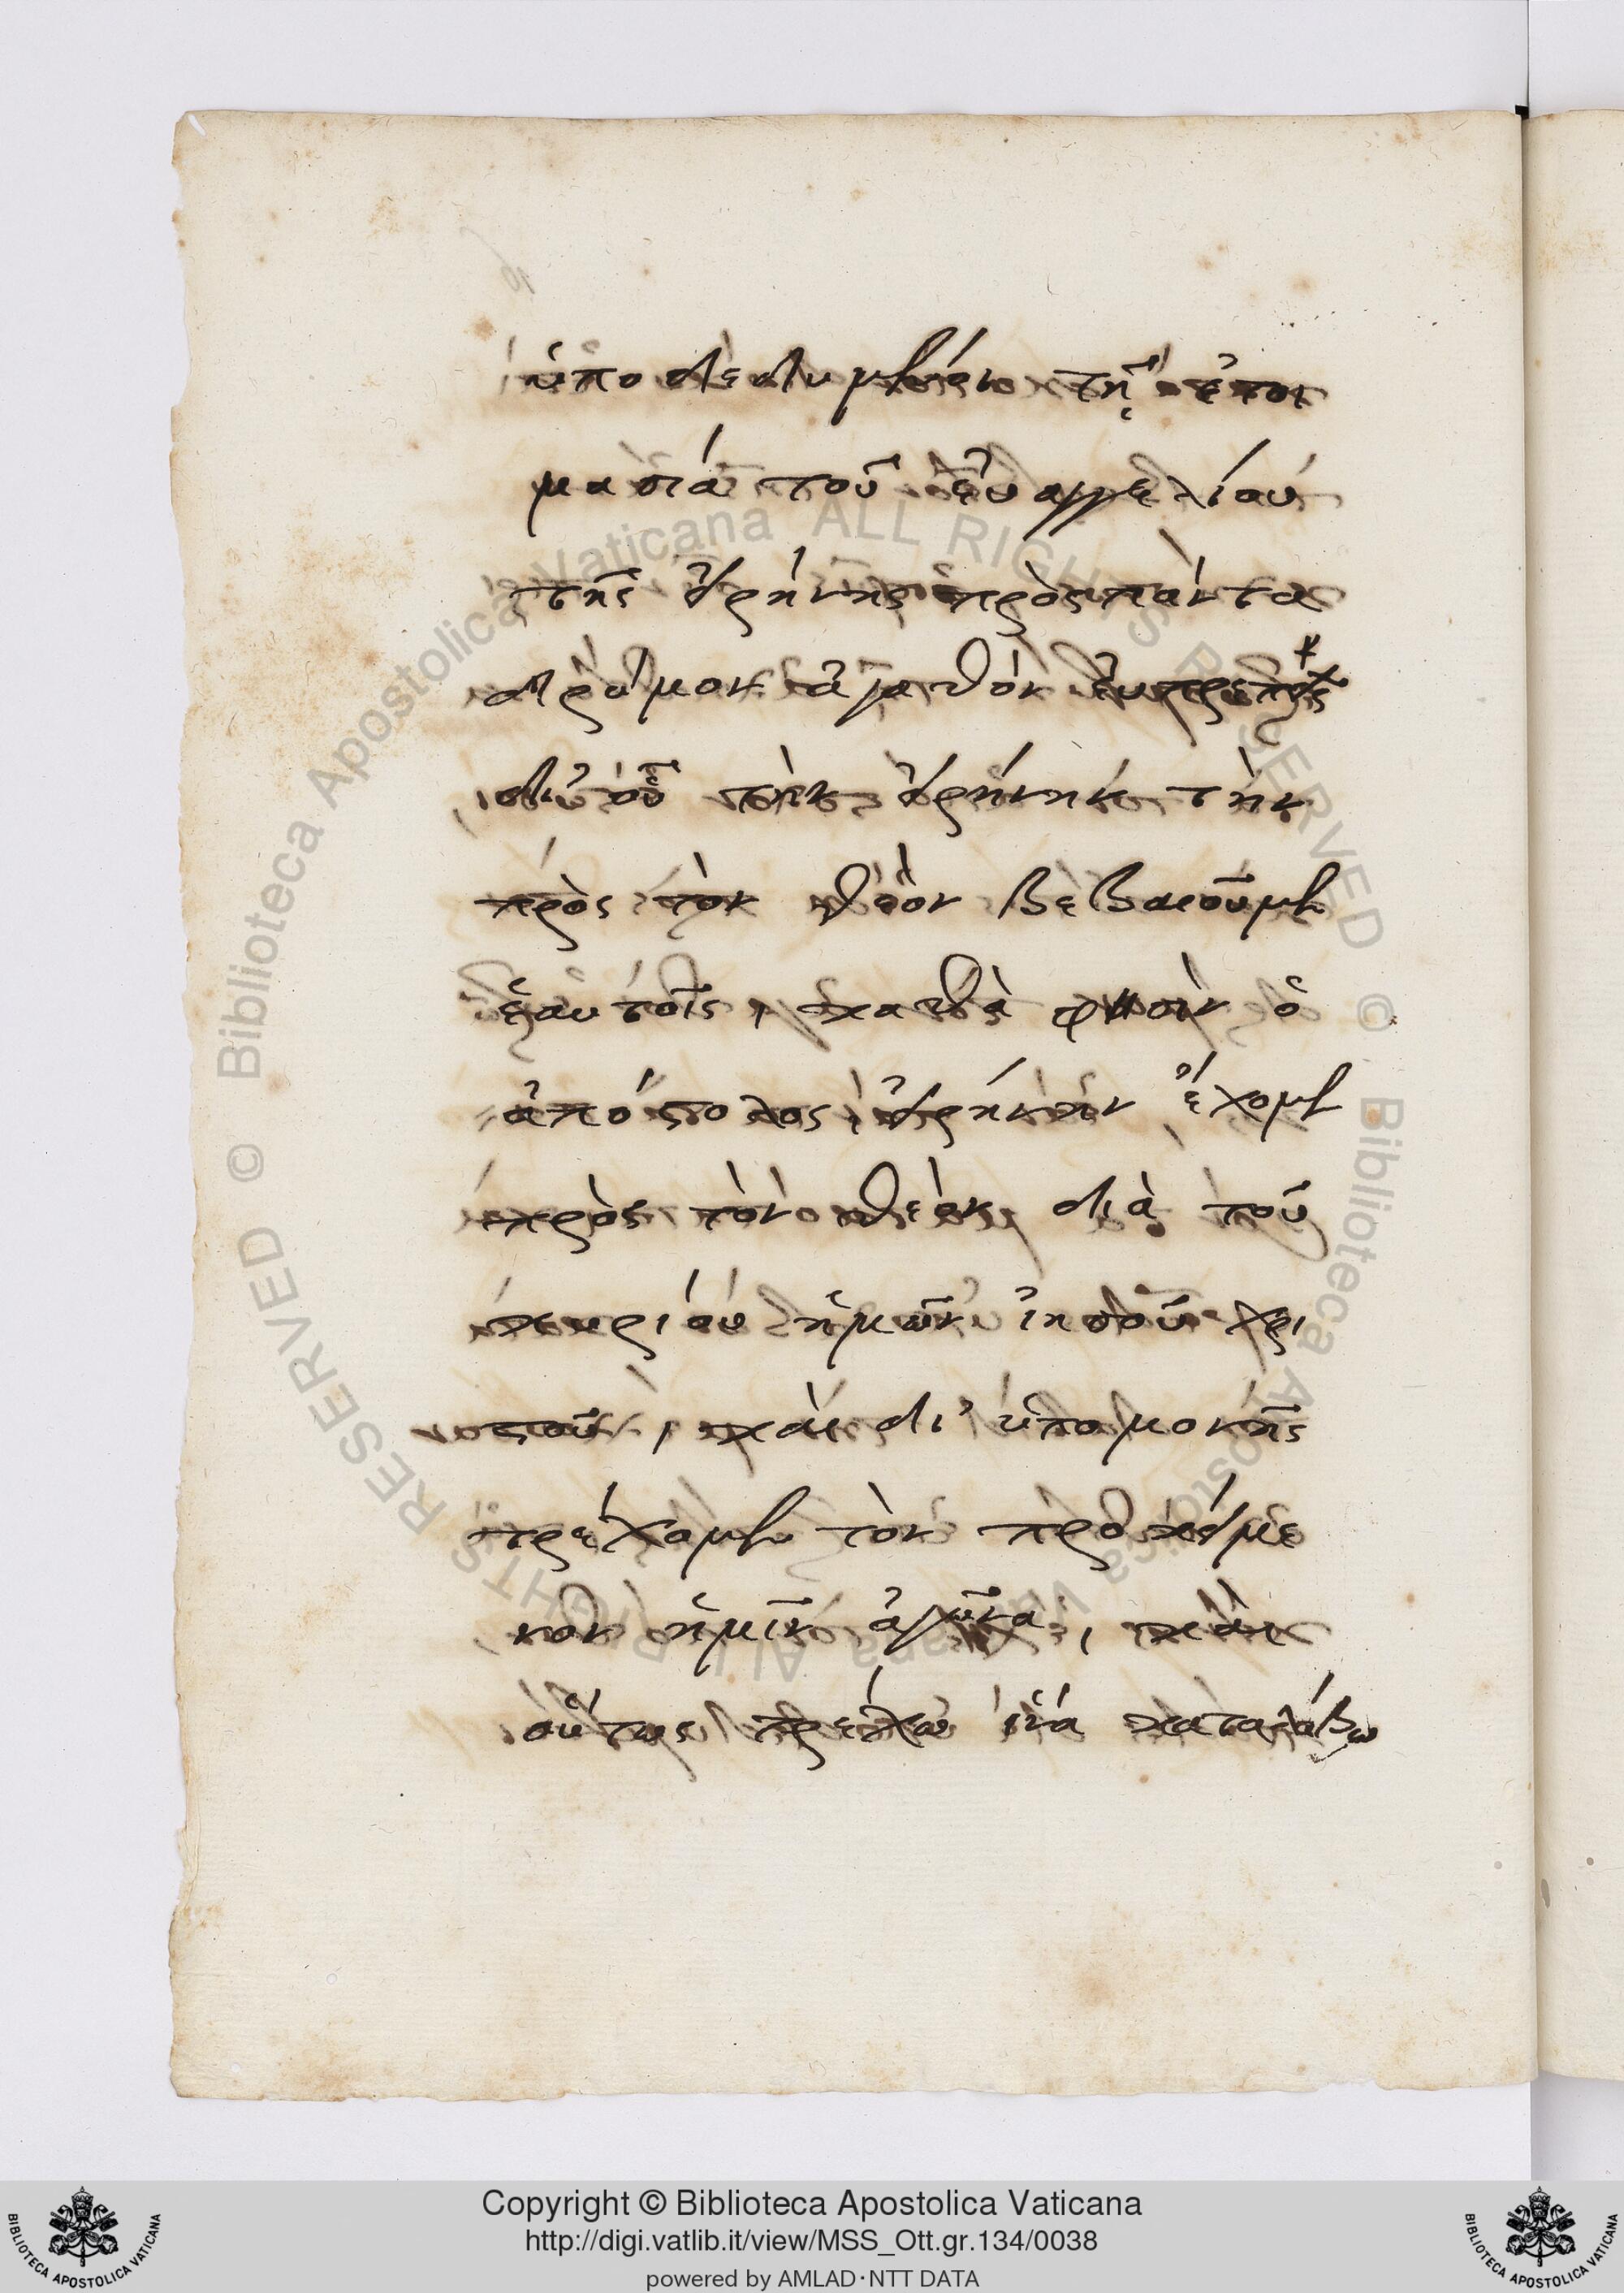 ὑποδεδυμένοι τῇ ἑτοι
μασία τοῦ εὐαγγελίου
τῆς εἰρήνης πρὸς πάντα
δρόμον ἀγαθὸν εὐπρεπῆς
δι' οὗ τὴν εἰρήνην τὴν
πρὸς τὸν θεὸν βεβαιοῦμεν
ἑαυτοῖς, καθὰ φησὶν ὁ
ἀπόστολος, εἰρήνην ἔχομεν
πρὸς τὸν θεὸν διὰ τοῦ
κυρίου ἡμῶν ἰησοῦ χρι
στοῦ, καὶ δι' ὑπομονῆς
τρέχομεν τὸν προκείμε
νον ἡμῖν ἀγῶνα, καὶ
οὕτως τρέχω ἵνα καταλάβω
Biblioteca Apostolica Vaticana ALL RIGHTS RESERVED ©
Biblioteca Apostolica Vaticana ALL RIGHTS RESERVED ©
Copyright © Biblioteca Apostolica Vaticana
http://digi.vatlib.it/view/MSS_Ott.gr.134/0038
powered by AMLAD·NTT DATA
BIBLIOTECA APOSTOLICA VATICANA
BIBLIOTECA APOSTOLICA VATICANA